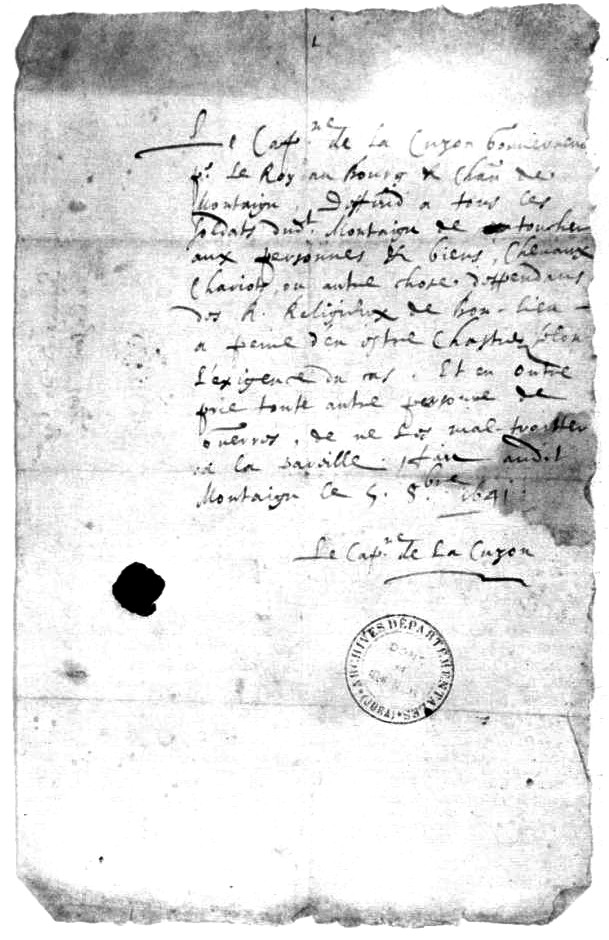 Le Cap.ne de La Cuzon Gouverneur
p.r Le Roy au Bourg & Chau de
Montaigu, Deffend a tous ses
soldats dud.t Montaigu de toucher
aux personnes & biens, Chevaux
Chariots, ou autre chose deppendans
des R. Religieux de Bon-lieu
a peine d'en estre Chastiez selon
L'exigence du cas. Et en outre
prie toute autre personne de
Guerres, de ne Les mal-traitter
a la pareille, faict aud.t
Montaigu le 5. 8.bre 1641
Le Cap.ne de La Cuzon
ARCHIVES DÉPARTEMENTALES
(JURA)